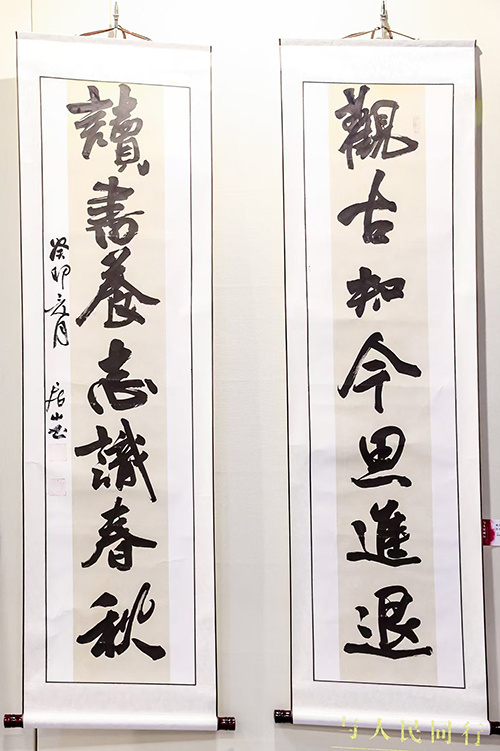 觀古知今思進退
讀書養志識春秋
癸卯六月
与人民同行